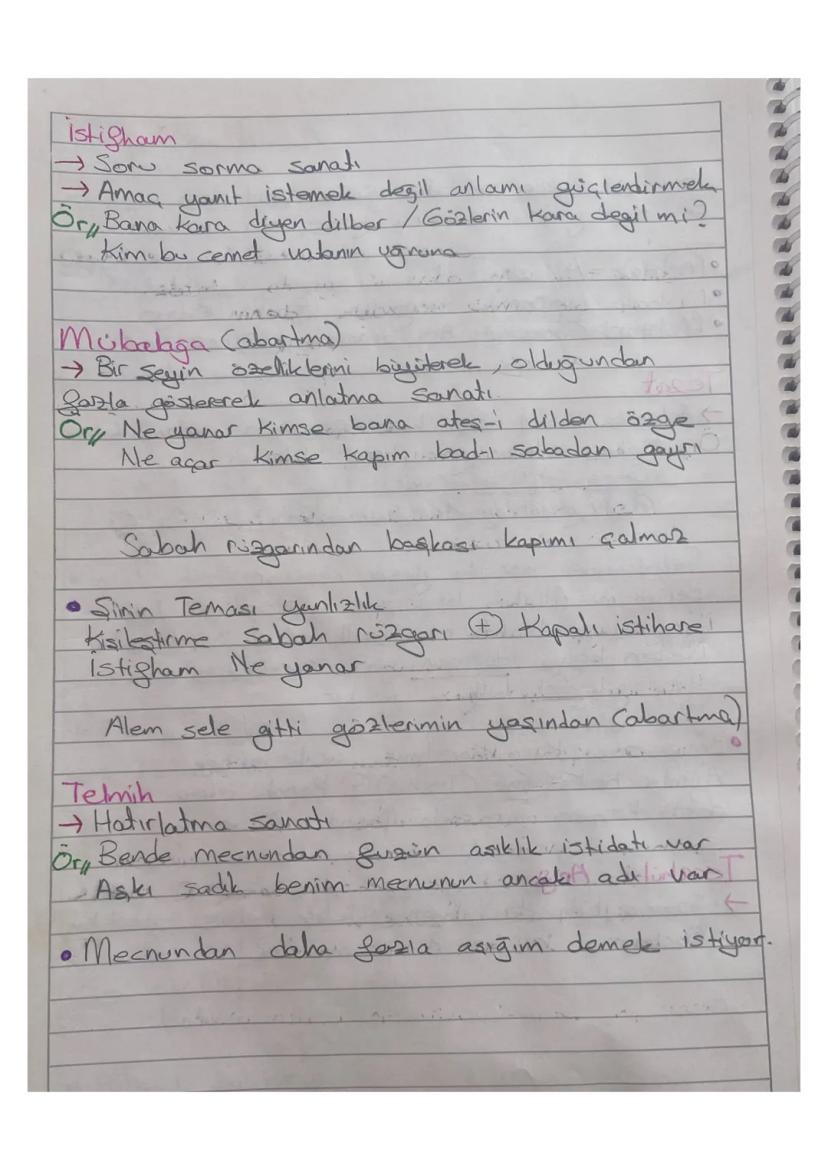 istigham
→ Soru sorma sanatı
→ Amaç yanıt istemek değil anlamı güçlendirmek
Ör// Bana kara diyen dilber / Gözlerin kara degil mi?
Kim bu cennet vatanın uğruna
Mübalağa (abartma)
→ Bir şeyin özeliklerini büyüterek, olduğundan
fazla göstererek anlatma sanatı
Ör// Ne yanar kimse bana ateş-i dilden özge
Ne açar kimse kapım bad-ı sabadan gayrı
Sabah rüzgarından başkası kapımı çalmaz
• Şiirin Teması yanlızlık
Kişileştirme Sabah rüzgarı + Kapalı istihare
İstigham Ne yanar
Alem sele gitti gözlerimin yaşından (abartma)
Telmih
→ Hatırlatma sanatı
Ör// Bende mecnundan fuzün aşıklık istidatı var
Aşkı sadık benim mecnunun ancak adı var
• Mecnundan daha fazla aşığım demek istiyor.